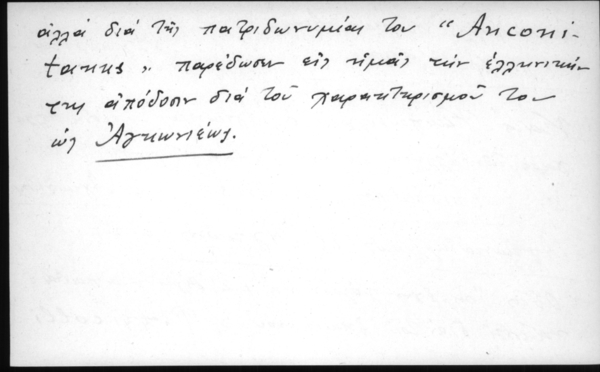 ἀλλά διά τῆς πατριδωνυμίας του "Anconi-
tanus", παρέδωσεν εἰς ἡμᾶς τήν ἑλληνικήν
της ἀπόδοσιν διά τοῦ χαρακτηρισμοῦ του
ὡς Ἀγκωνιέως.